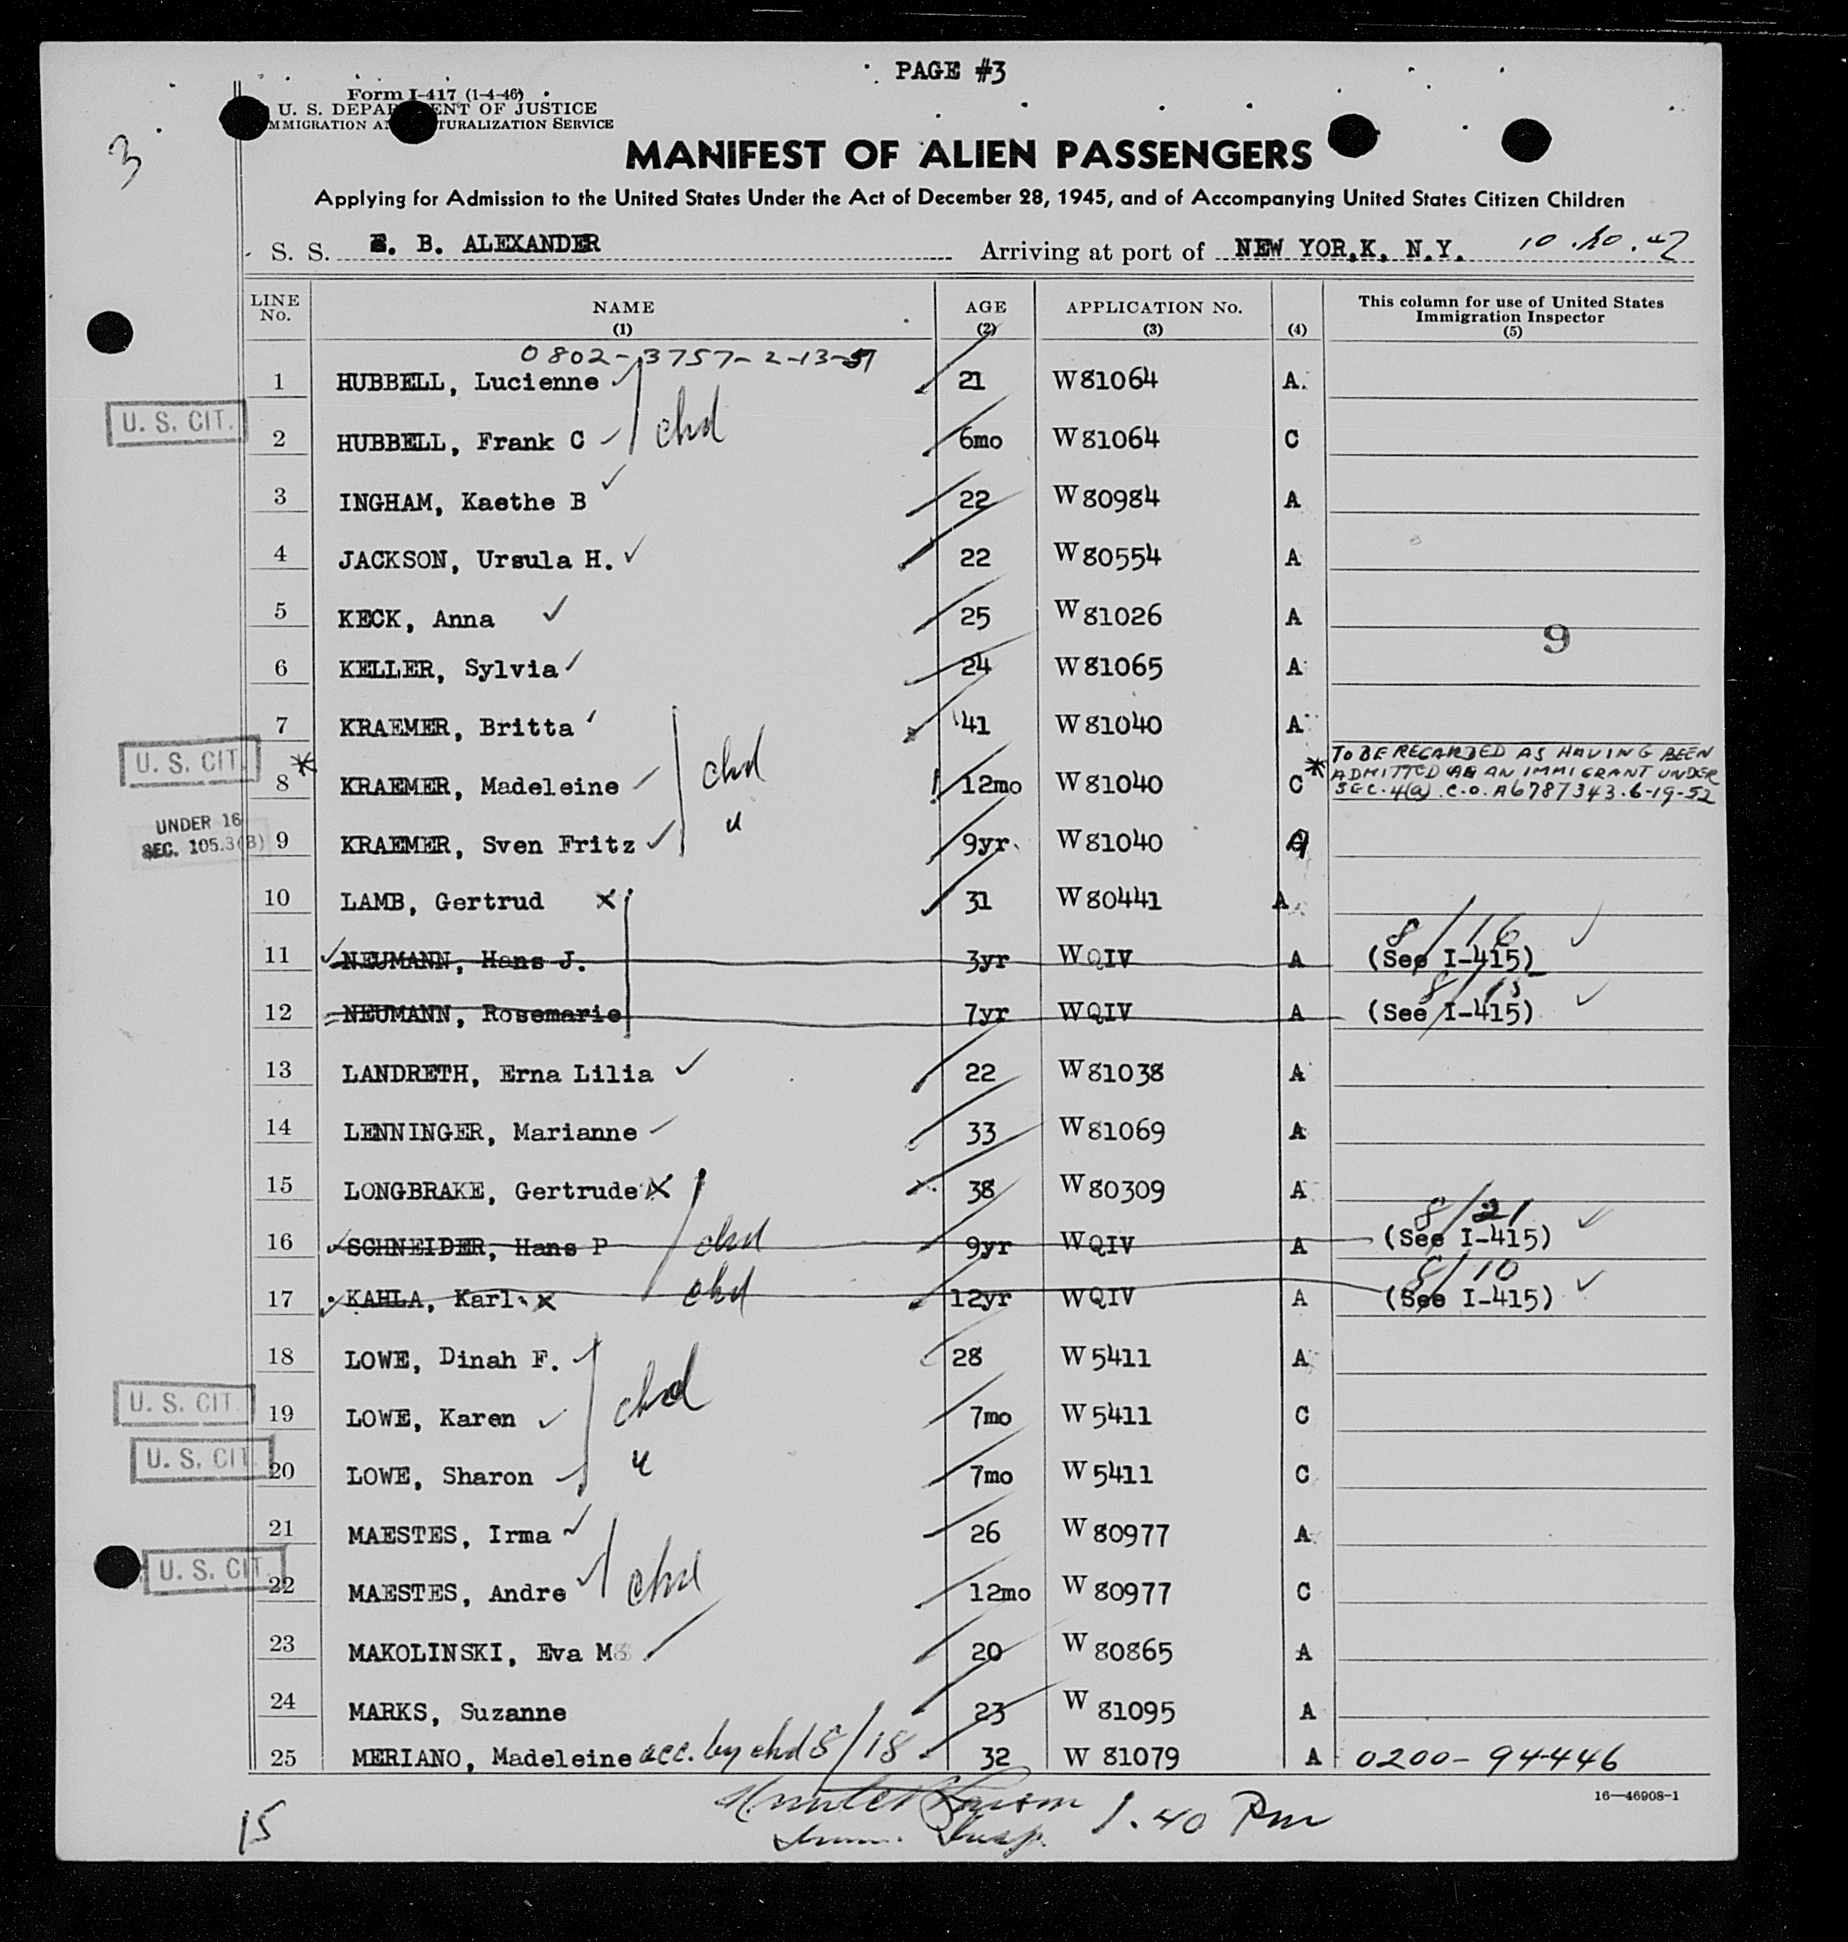 PAGE #3
Form I-417 (1-4-46)
U. S. DEPARTMENT OF JUSTICE
IMMIGRATION AND NATURALIZATION SERVICE
3
MANIFEST OF ALIEN PASSENGERS
Applying for Admission to the United States Under the Act of December 28, 1945, and of Accompanying United States Citizen Children
S. S. E. B. ALEXANDER Arriving at port of NEW YOR,K, N.Y.
LINE No. NAME (1) AGE (2) APPLICATION No. (3) (4) This column for use of United States Immigration Inspector (5)
0802-3757-2-13-57
1 HUBBELL, Lucienne 21 W 81064 A
U. S. CIT. 2 HUBBELL, Frank C chd 6mo W 81064 C
3 INGHAM, Kaethe B 22 W 80984 A
4 JACKSON, Ursula H. 22 W 80554 A
5 KECK, Anna 25 W 81026 A
9
6 KELLER, Sylvia 24 W 81065 A
7 KRAEMER, Britta 41 W 81040 A
U. S. CIT. * 8 KRAEMER, Madeleine chd 12mo W 81040 C * TO BE REGARDED AS HAVING BEEN
ADMITTED AS AN IMMIGRANT UNDER
SEC. 4(a) C.O. A6787343. 6-19-52
UNDER 16
SEC. 105.3(B) 9 KRAEMER, Sven Fritz " 9yr W 81040
10 LAMB, Gertrud X 31 W 80441 A
11 NEUMANN, Hans J. 3yr W QIV A 8/16 (See I-415)
12 NEUMANN, Rosemarie 7yr W QIV A (See I-415)
13 LANDRETH, Erna Lilia 22 W 81038 A
14 LENNINGER, Marianne 33 W 81069 A
15 LONGBRAKE, Gertrude X 38 W 80309 A
16 SCHNEIDER, Hans P chd 9yr W QIV A 8/21 (See I-415)
17 KAHLA, Karl X chd 12yr W QIV A 8/10 (See I-415)
18 LOWE, Dinah F. 28 W 5411 A
U. S. CIT. 19 LOWE, Karen chd 7mo W 5411 C
U. S. CIT. 20 LOWE, Sharon " 7mo W 5411 C
21 MAESTES, Irma 26 W 80977 A
U. S. CIT. 22 MAESTES, Andre chd 12mo W 80977 C
23 MAKOLINSKI, Eva M 20 W 80865 A
24 MARKS, Suzanne 23 W 81095 A
25 MERIANO, Madeleine acc. by chd 8/18 32 W 81079 A 0200-94446
16—46908-1
15 1.40 Pm
Imm. Insp.